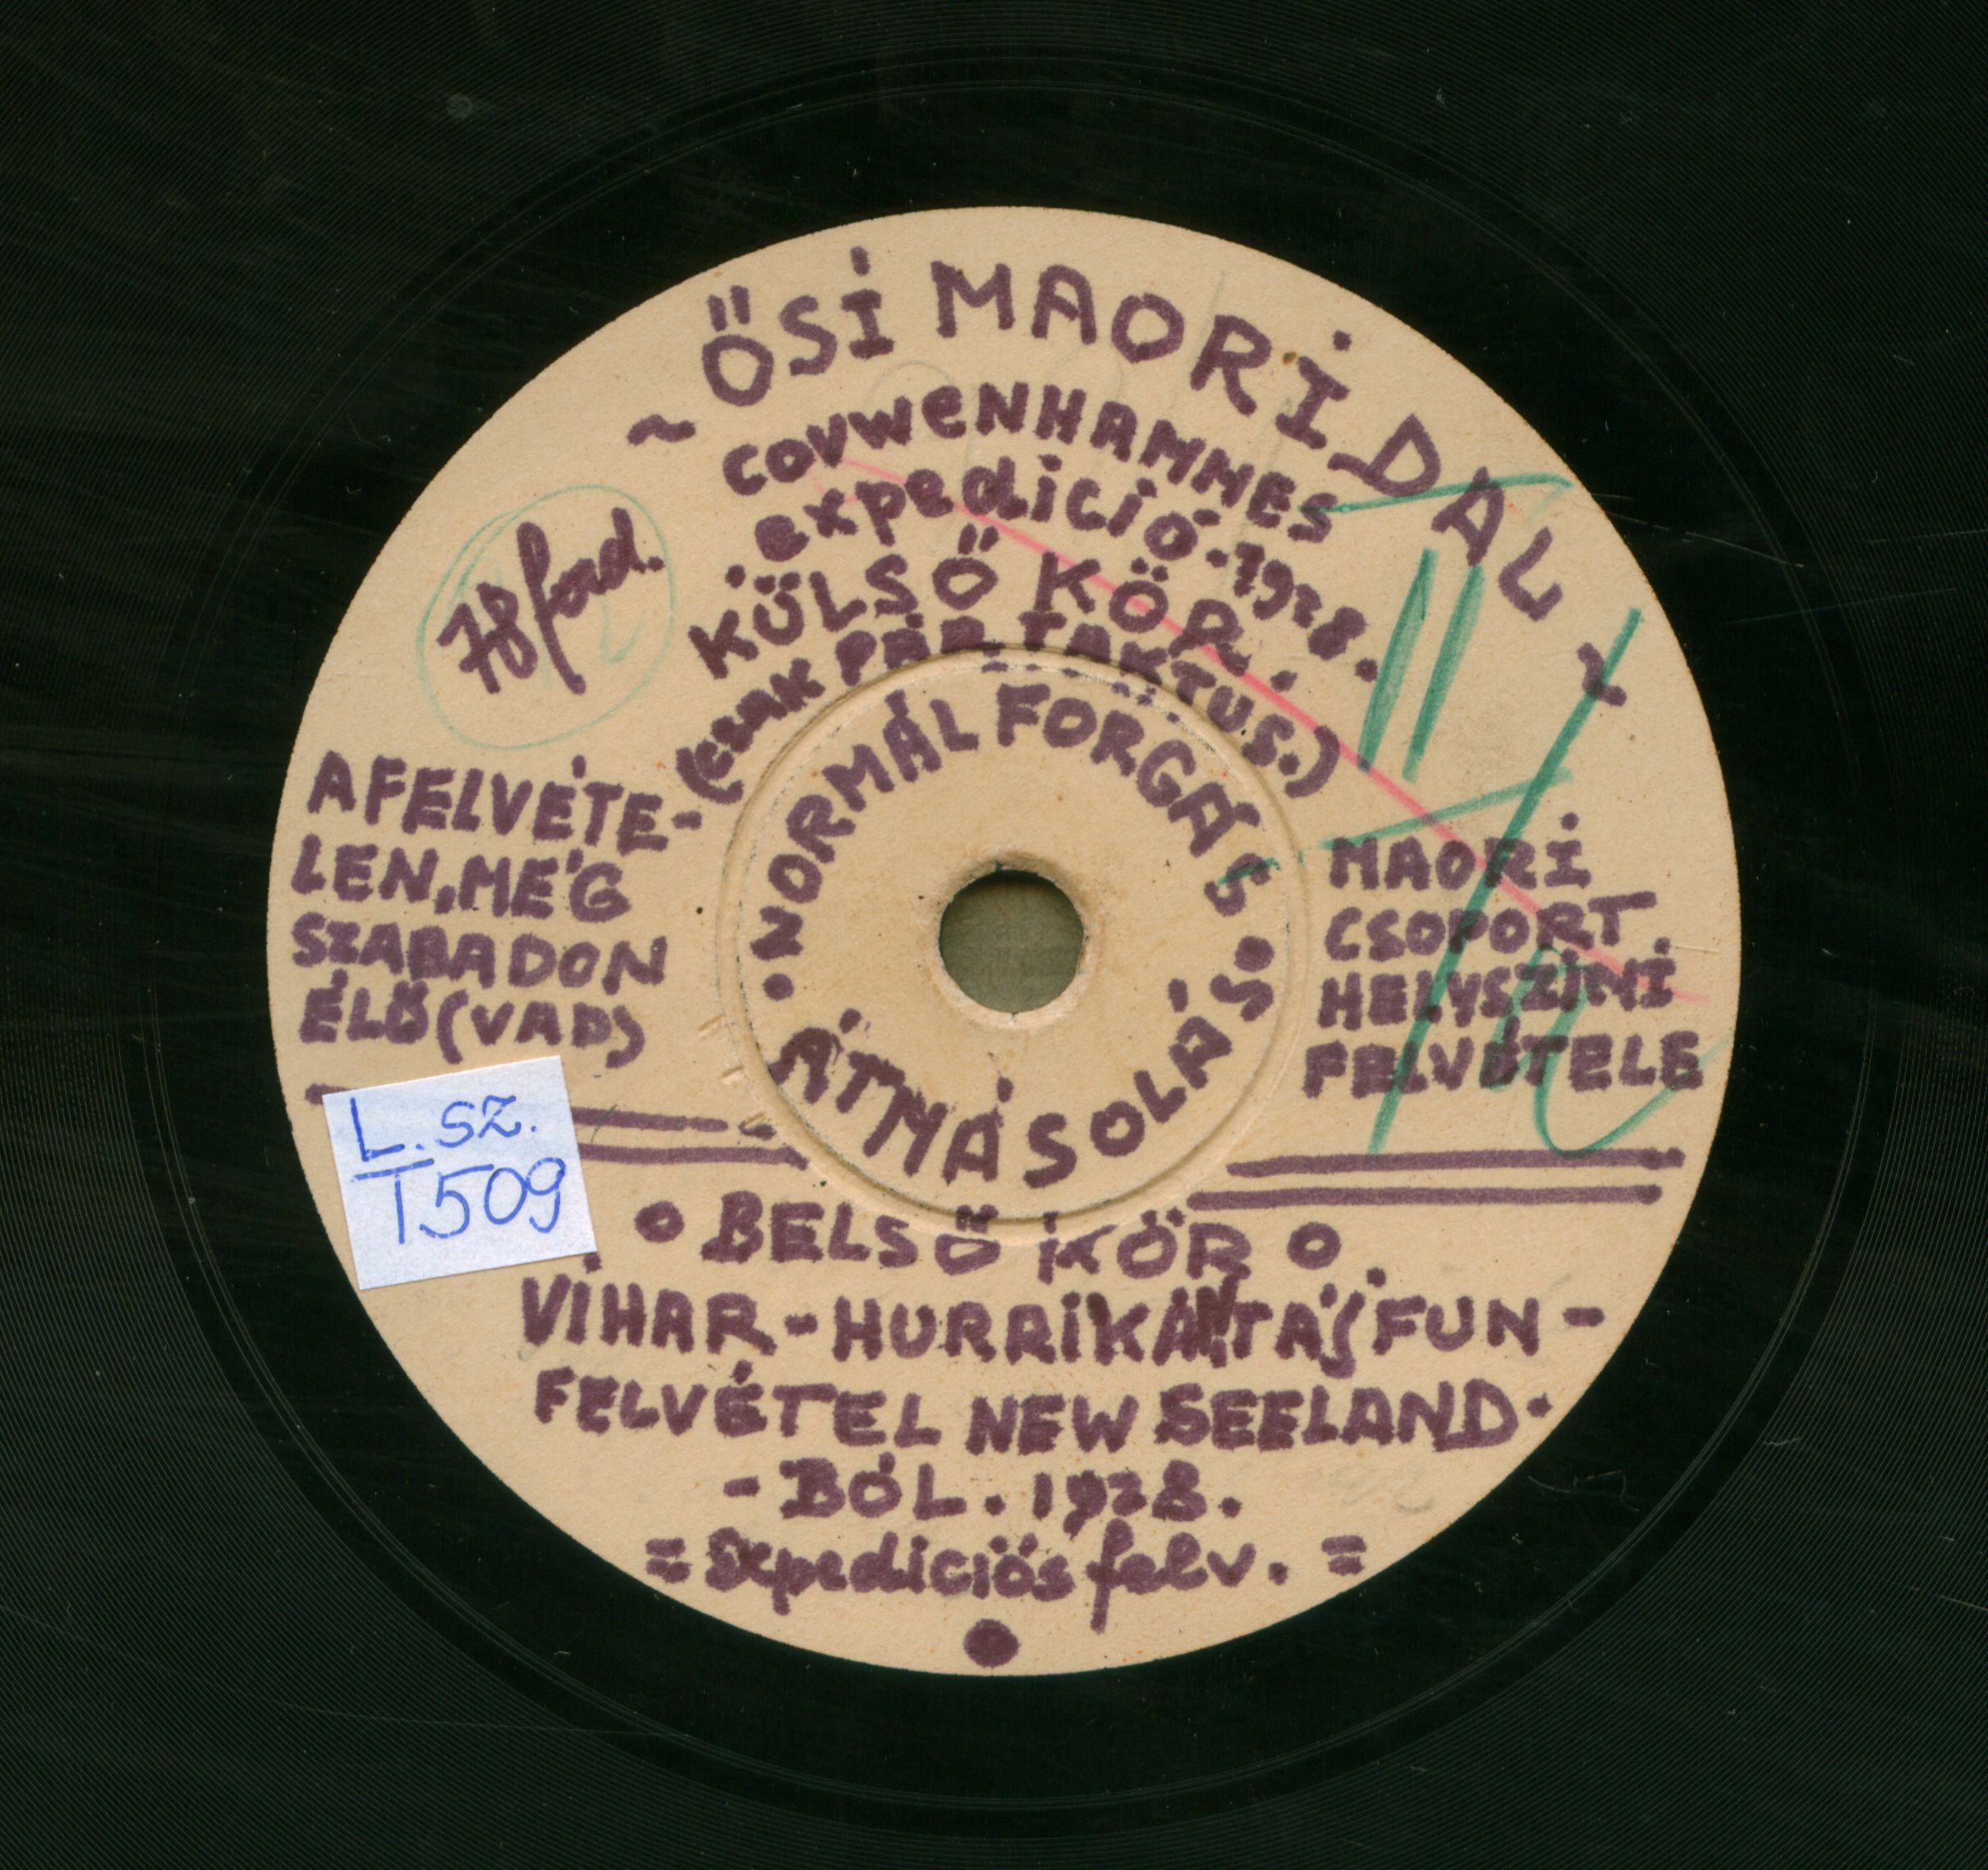 ~ ŐSI MAORI DAL ~
COUWENHAMMES
expedició-1928.
KÜLSŐ KÖR.
(CSAK PÁR TAKTUS.)
78 ford.
• NORMÁL FORGÁS •
ÁTMÁSOLÁS
A FELVÉTE-
LEN, MÉG
SZABADON
ÉLŐ (VAD)
MAORI
CSOPORT
HELYSZINI
FELVÉTELE
L. SZ.
1509
o BELSŐ KÖR o
VIHAR - HURRIKÁN TÁJFUN -
FELVÉTEL NEW SEELAND-
- BÓL. 1928.
= Expediciós felv. =